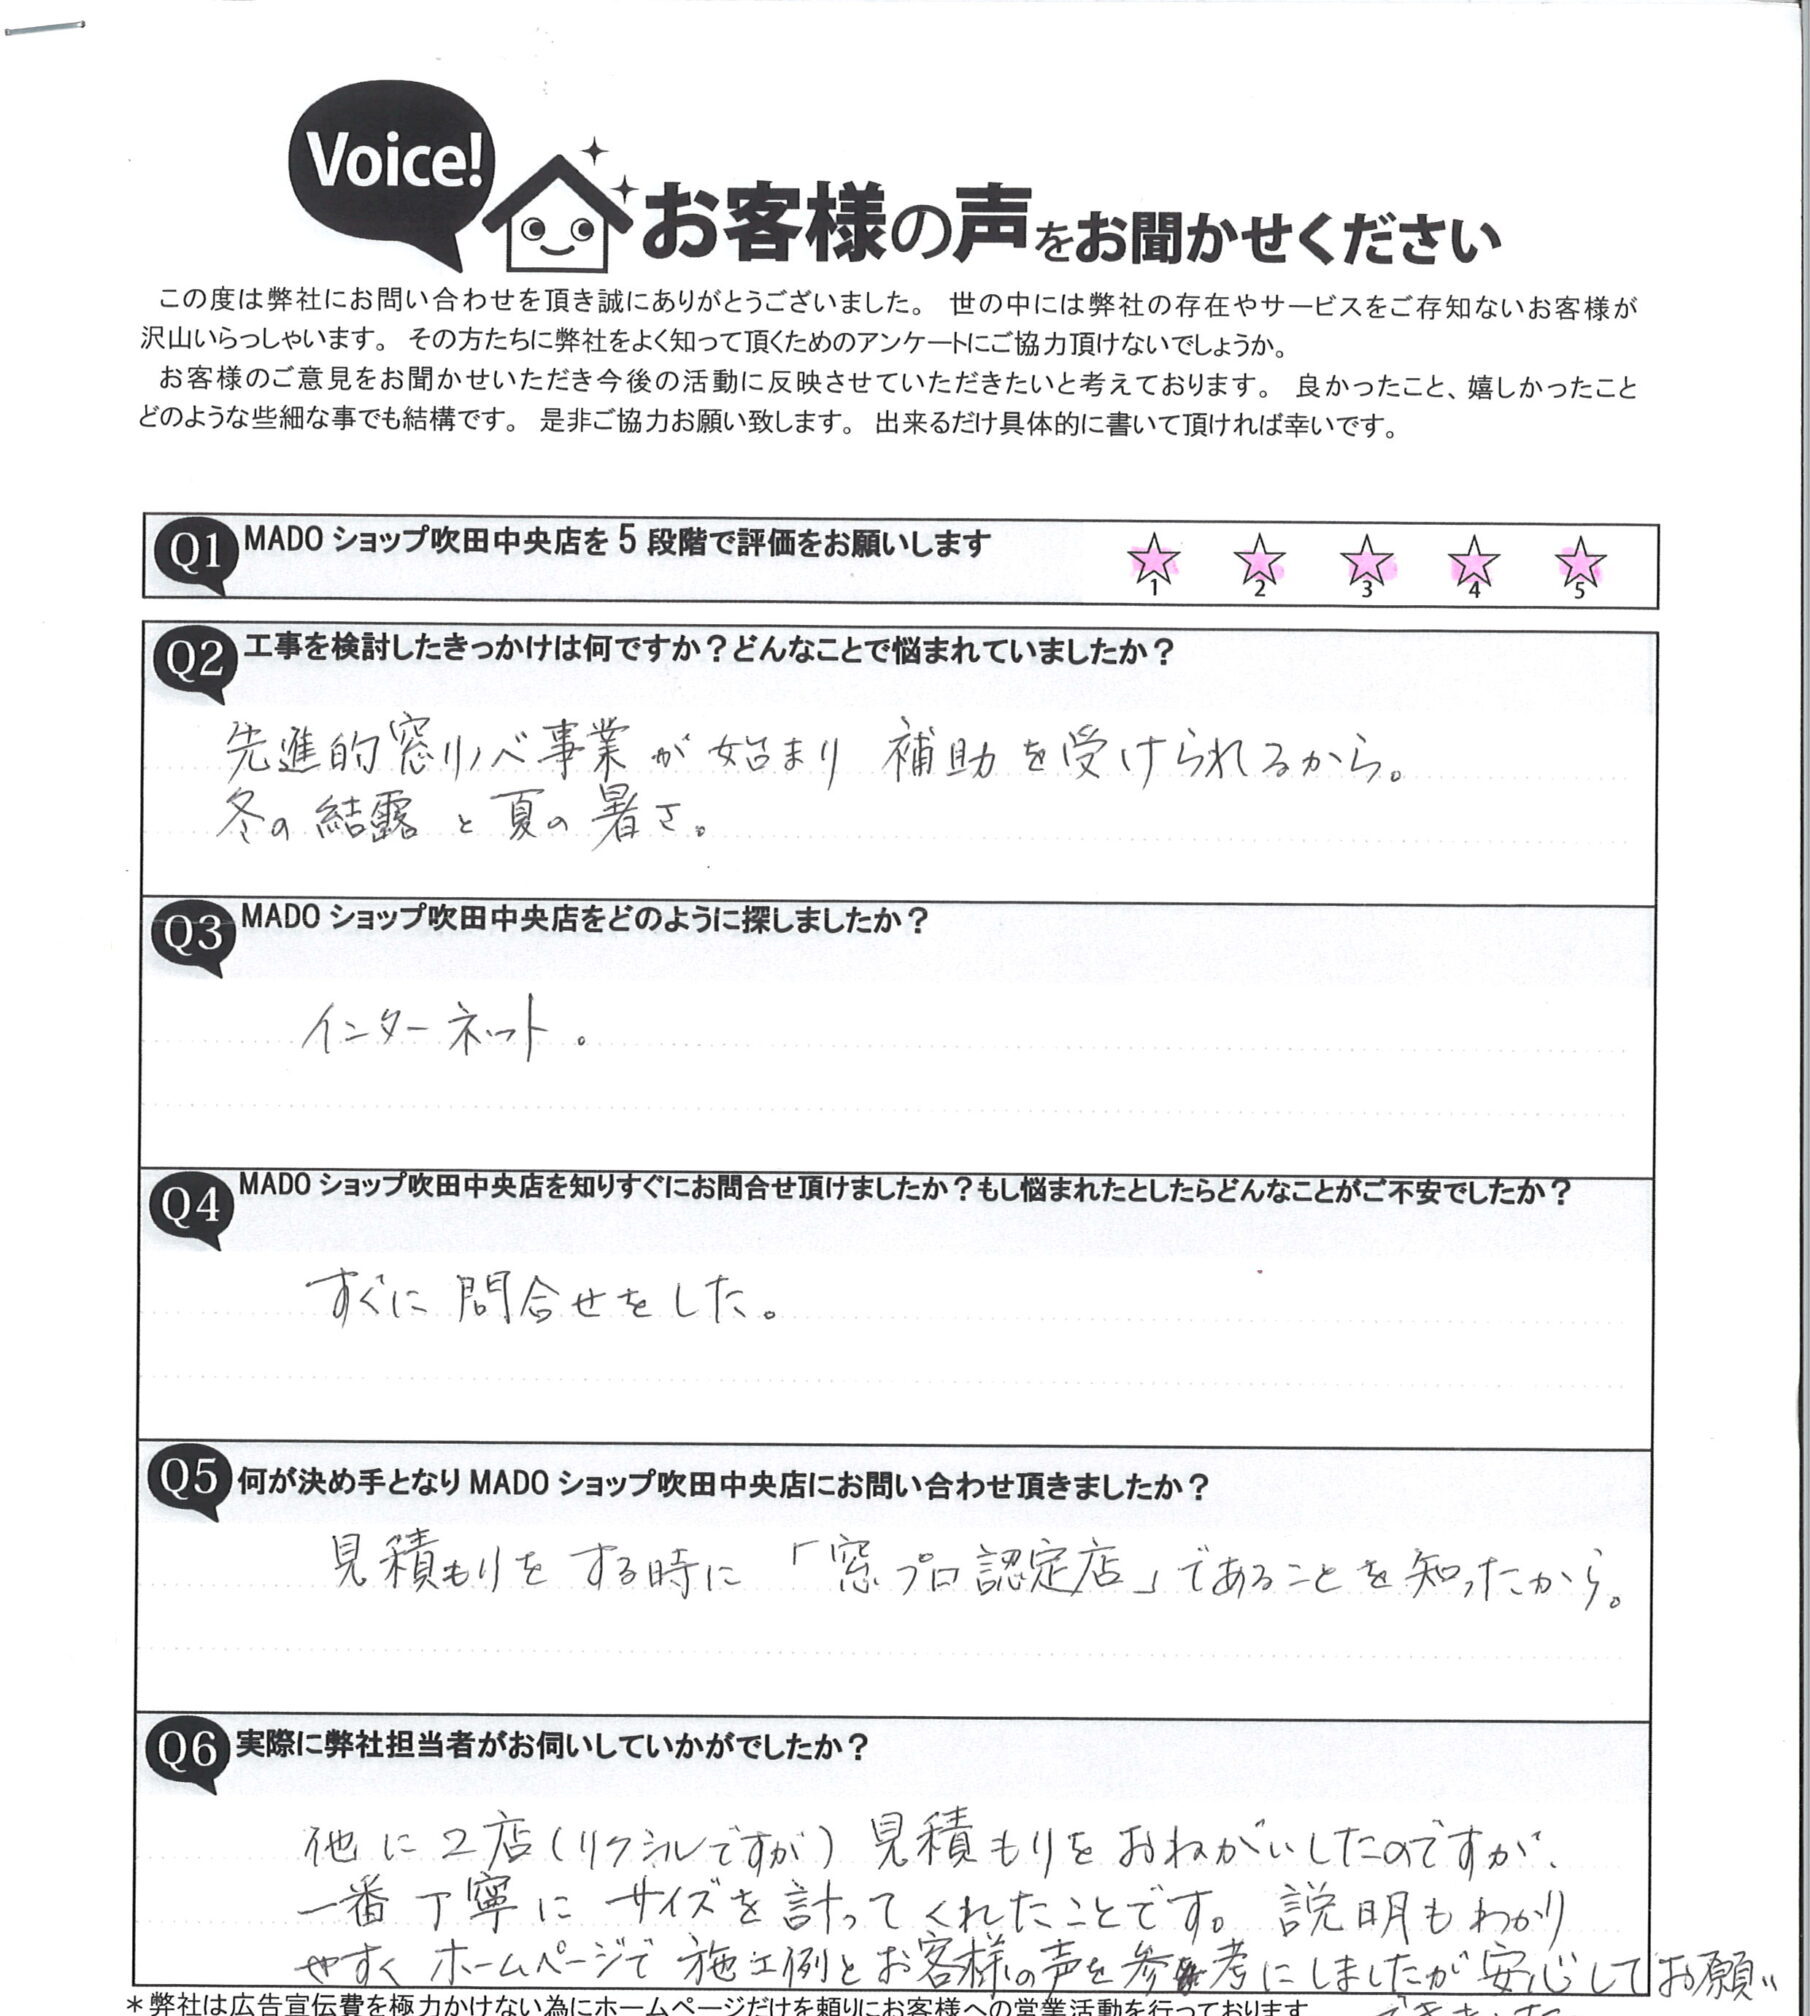 Voice!
お客様の声をお聞かせください
この度は弊社にお問い合わせを頂き誠にありがとうございました。 世の中には弊社の存在やサービスをご存知ないお客様が
沢山いらっしゃいます。 その方たちに弊社をよく知って頂くためのアンケートにご協力頂けないでしょうか。
お客様のご意見をお聞かせいただき今後の活動に反映させていただきたいと考えております。 良かったこと、嬉しかったこと
どのような些細な事でも結構です。 是非ご協力お願い致します。 出来るだけ具体的に書いて頂ければ幸いです。
Q1 MADO ショップ吹田中央店を 5 段階で評価をお願いします
1 2 3 4 5
Q2 工事を検討したきっかけは何ですか？どんなことで悩まれていましたか？
先進的窓リノベ事業が始まり 補助を受けられるから。
冬の結露と夏の暑さ。
Q3 MADO ショップ吹田中央店をどのように探しましたか？
インターネット。
Q4 MADO ショップ吹田中央店を知りすぐにお問合せ頂けましたか？もし悩まれたとしたらどんなことがご不安でしたか？
すぐに問合せをした。
Q5 何が決め手となり MADO ショップ吹田中央店にお問い合わせ頂きましたか？
見積もりをする時に「窓プロ認定店」であることを知ったから。
Q6 実際に弊社担当者がお伺いしていかがでしたか？
他に2店(リクシルですが)見積もりをおねがいしたのですが、
一番丁寧にサイズを計ってくれたことです。説明もわかり
やすくホームページで施工例とお客様の声を参考にしましたが安心してお願い
できました
＊弊社は広告宣伝費を極力かけない為にホームページだけを頼りにお客様への営業活動を行っております